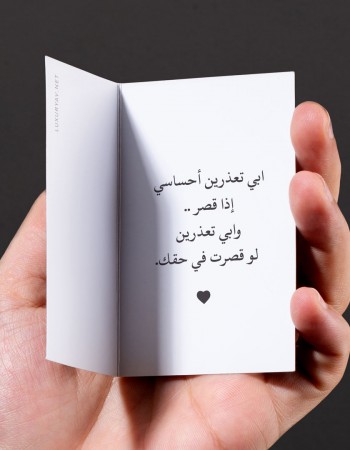 LUXURYAY.NET
ابي تعذرين أحساسي
إذا قصر ..
وابي تعذرين
لو قصرت في حقك.